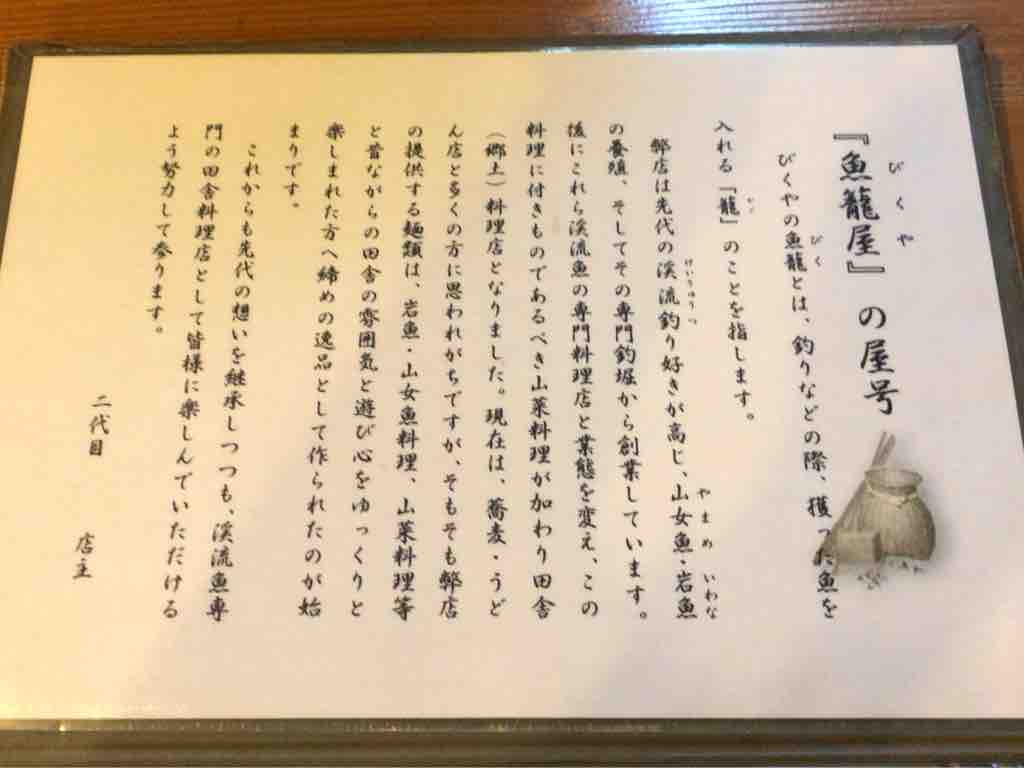 『魚籠屋』の屋号
びくや
びくやの魚籠とは、釣りなどの際、獲った魚を
びく
入れる『籠』のことを指します。
かご
弊店は先代の渓流釣り好きが高じ、山女魚・岩魚
けいりゅうつ
やまめ
いわな
の養殖、そしてその専門釣堀から創業しています。
後にこれら渓流魚の専門料理店と業態を変え、この
料理に付きものであるべき山菜料理が加わり田舎
(郷土)料理店となりました。現在は、蕎麦・うど
ん店と多くの方に思われがちですが、そもそも弊店
の提供する麺類は、岩魚・山女魚料理、山菜料理等
と昔ながらの田舎の雰囲気と遊び心をゆっくりと
楽しまれた方へ締めの逸品として作られたのが始
まりです。
これからも先代の想いを継承しつつも、渓流魚専
門の田舎料理店として皆様に楽しんでいただける
よう努力して参ります。
二代目 店主